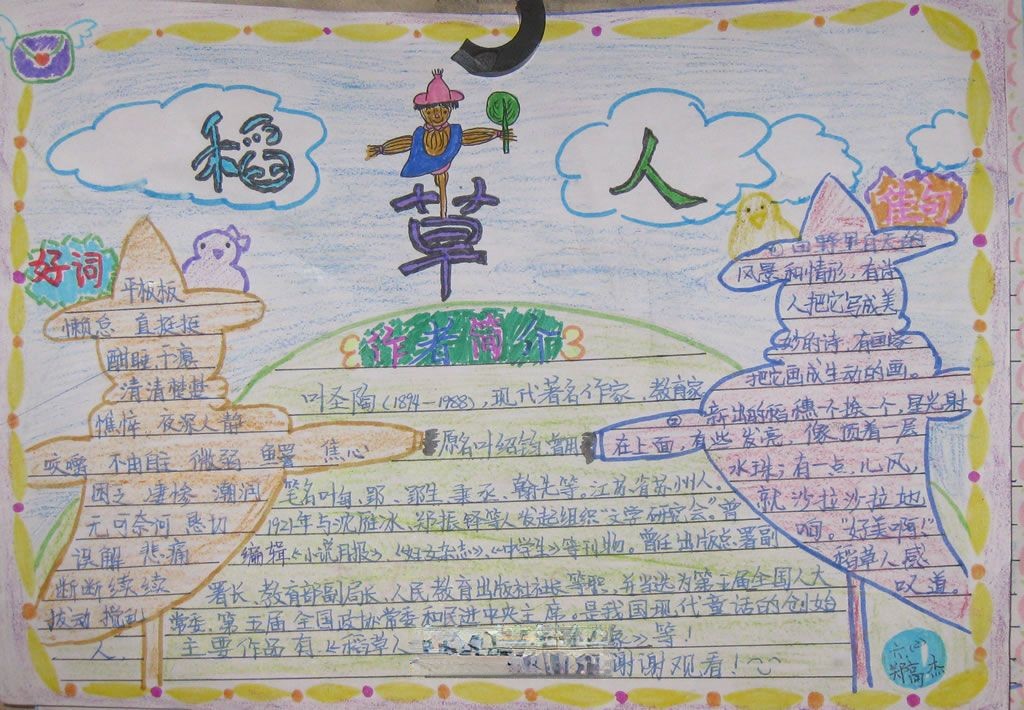 稻草人
好词
平板板
懒怠 直挺挺
酣睡 干瘪
清清楚楚
憔悴 夜深人静
咬嚼 不由自主 微弱 焦心
困乏 凄惨 潮润
无可奈何 恳切
误解 悲痛
断断续续
拨动 搅乱
作者简介
叶圣陶(1894—1988),现代著名作家、教育家
原名叶绍钧,曾用
笔名叶匋、郢、郢生、秉丞、翰先等。江苏省苏州人。
1921年与沈雁冰、郑振铎等人发起组织“文学研究会”。曾
编辑《小说月报》、《妇女杂志》、《中学生》等刊物。曾任出版总署副
署长、教育部副局长、人民教育出版社社长等职,并当选为第五届全国人大
常委、第五届全国政协常委和民进中央主席。是我国现代童话的创始
人.
主要作品有《稻草人 》等!
谢谢观看!
佳句
①田野里白天的
风景和情形,有诗
人把它写成美
妙的诗,有画家
把它画成生动的画。
②新出的稻穗一个挨一个,星光射
在上面,有些发亮,像顶着一层
水珠;有一点儿风,
就沙拉沙拉地
响。“好美啊!”
稻草人感
叹道。
六.
郑高杰